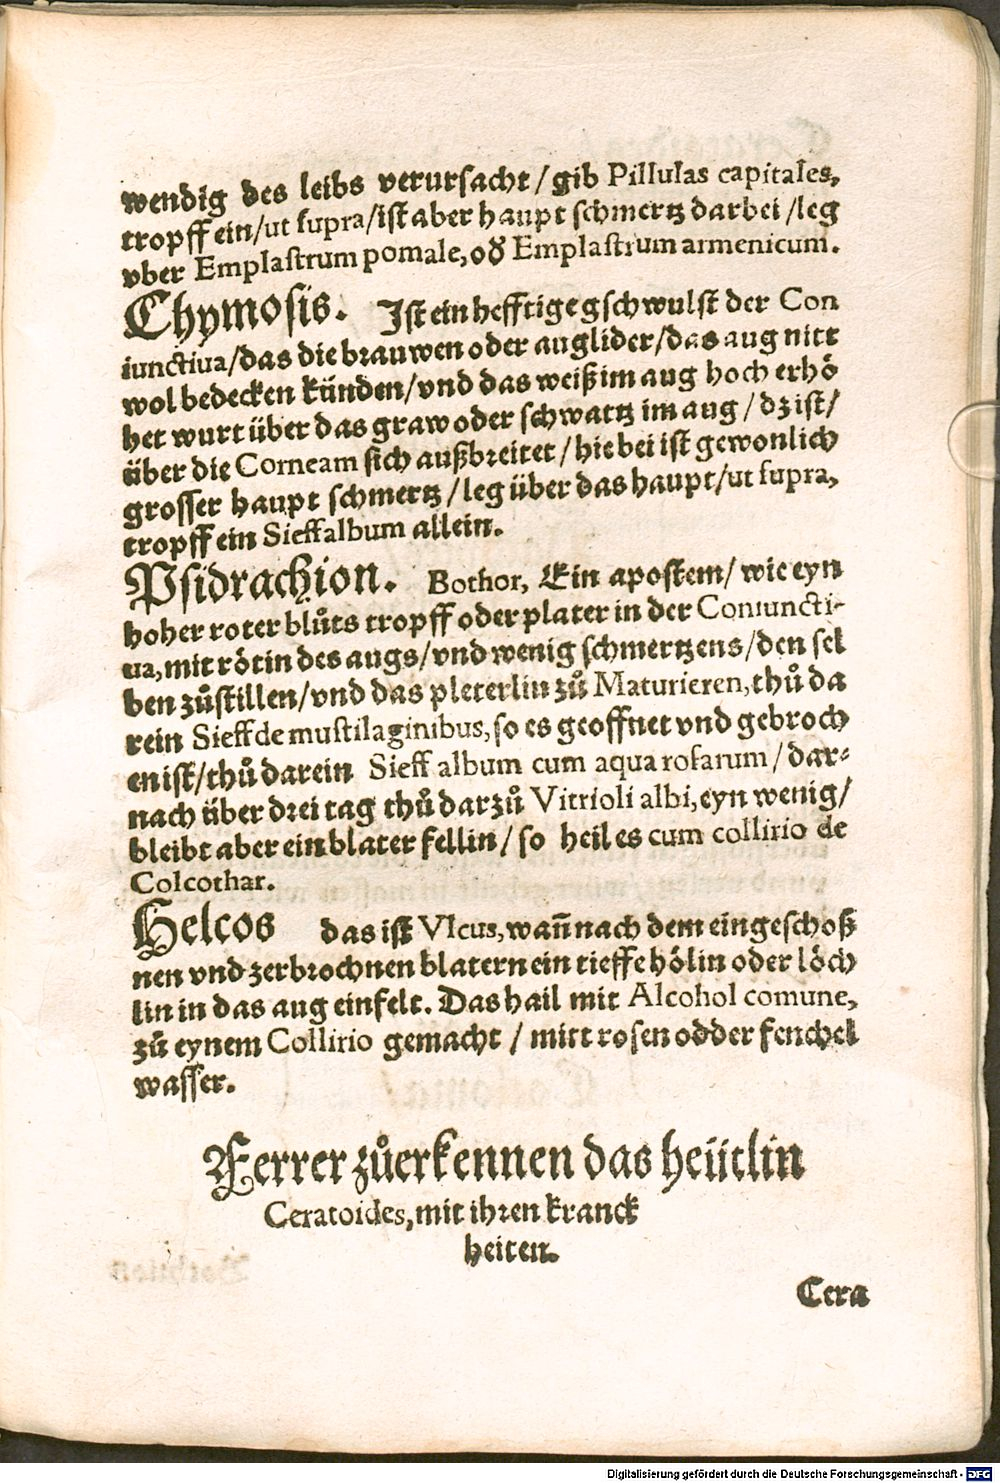 wendig des leibs verursacht / gib Pillulas capitales,
tropff ein / ut supra / ist aber haupt schmertz darbei / leg
vber Emplastrum pomale, oď Emplastrum armenicum.
Chymosis. Ist ein hefftige gschwulst der Con
iunctiua / das die brauwen oder auglider / das aug nitt
wol bedecken künden / vnd das weiß im aug hoch erhö
het wurt über das graw oder schwartz im aug / dz ist /
über die Corneam sich außbreitet / hie bei ist gewonlich
grosser haupt schmertz / leg über das haupt / ut supra,
tropff ein Sieff album allein.
Psidrachion. Bothor, Ein apostem / wie eyn
hoher roter blůts tropff oder plater in der Coniuncti-
ua, mit rötin des augs / vnd wenig schmertzens / den sel
ben zůstillen / vnd das pleterlin zů Maturieren, thů da
rein Sieff de mustilaginibus, so es geoffnet vnd gebroch
en ist / thů darein Sieff album cum aqua rosarum / dar-
nach über drei tag thů darzů Vitrioli albi, eyn wenig /
bleibt aber ein blater fellin / so heil es cum collirio de
Colcothar.
Helcos das ist Vlcus, wañ nach dem eingeschoß
nen vnd zerbrochnen blatern ein tieffe hölin oder löch
lin in das aug einfelt. Das hail mit Alcohol comune,
zů eynem Collirio gemacht / mitt rosen odder fenchel
wasser.
Ferrer zůerkennen das heütlin
Ceratoides, mit ihren kranck
heiten.
Cera
Digitalisierung gefördert durch die Deutsche Forschungsgemeinschaft - DFG